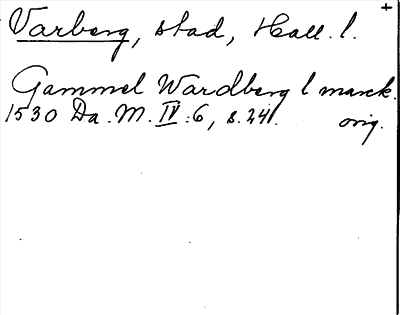 Varberg, stad, Hall. l. +
Gammel Wardberg l marck.
1530 Da. M. IV:6, s. 241. orig.